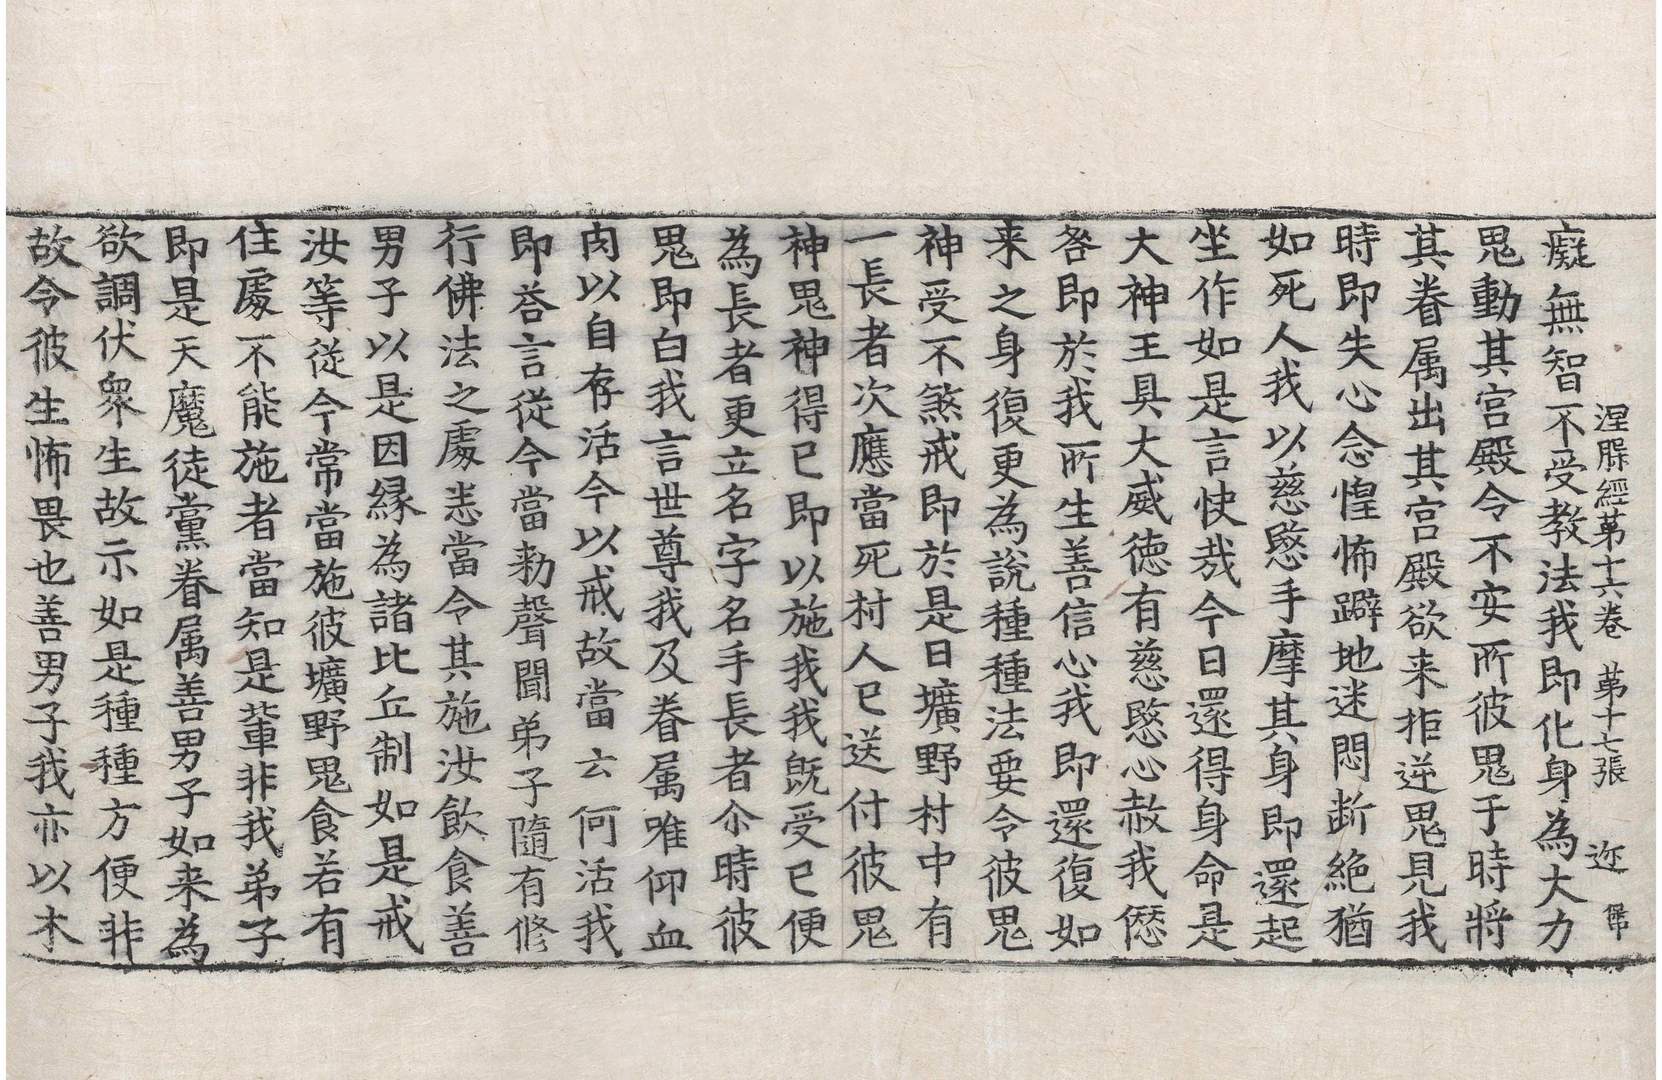 涅槃經第十六卷 第十七張 迩 佛
癡無智不受教法我即化身為大力
鬼動其宮殿令不安所彼鬼于時將
其眷属出其宮殿欲来拒逆鬼見我
時即失心念惶怖躃地迷悶断絶猶
如死人我以慈愍手摩其身即還起
坐作如是言快㢤今日還得身命是
大神王具大威徳有慈愍心赦我𠎝
咎即於我所生善信心我即還復如
来之身復更為說種種法要令彼鬼
神受不煞戒即於是日壙野村中有
一長者次應當死村人已送付彼鬼
神鬼神得已即以施我我既受已便
為長者更立名字名手長者尒時彼
鬼即白我言世尊我及眷属唯仰血
肉以自存活今以戒故當云何活我
即荅言從今當勑聲聞弟子隨有修
行佛法之處悉當令其施汝飲食善
男子以是因縁為諸比丘制如是戒
汝等從今常當施彼壙野鬼食若有
住處不能施者當知是輩非我弟子
即是天魔徒黨眷属善男子如来為
欲調伏衆生故示如是種種方便非
故令彼生怖畏也善男子我亦以木